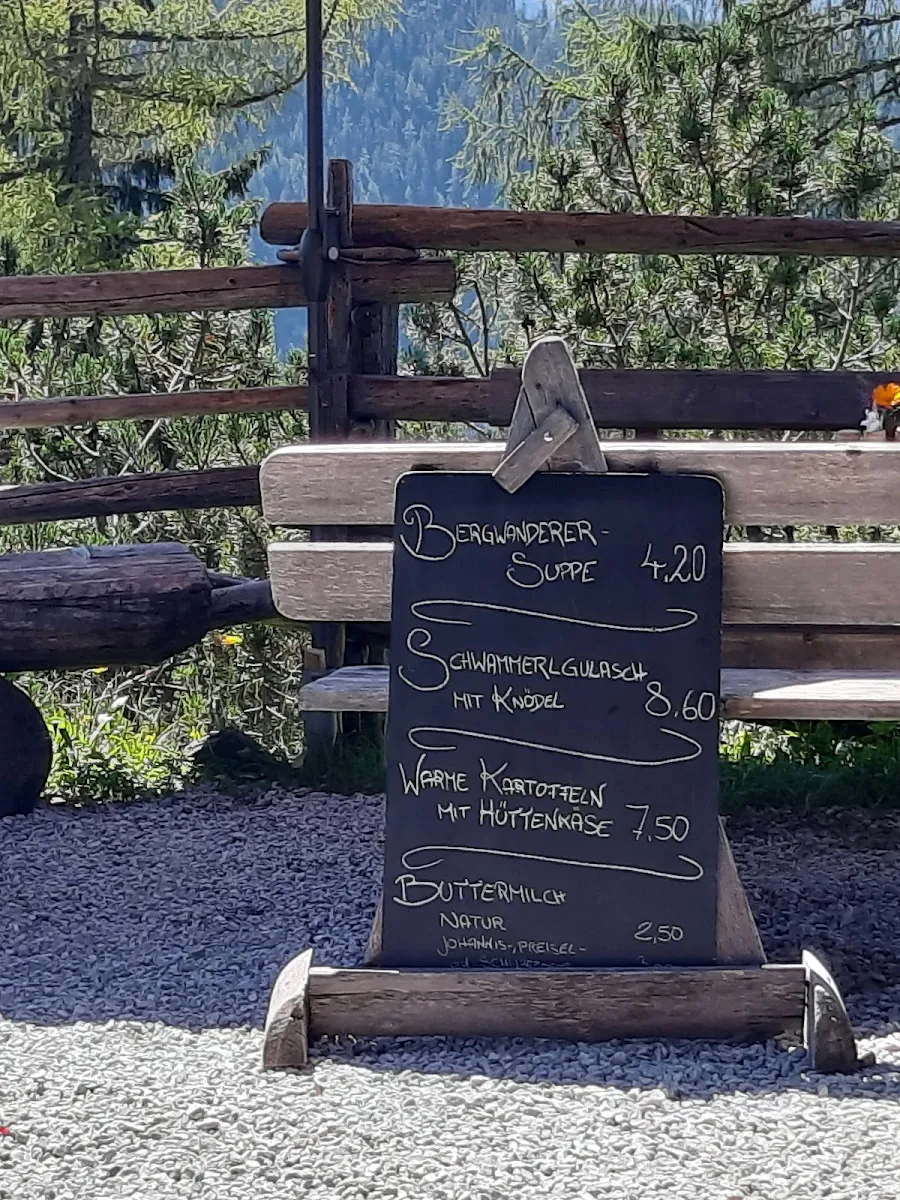 BERGWANDERER-
SUPPE 4,20
SCHWAMMERLGULASCH
MIT KNÖDEL 8,60
WARME KARTOFFELN
MIT HÜTTENKÄSE 7,50
BUTTERMILCH
NATUR 2,50
JOHANNIS-, PREISEL-